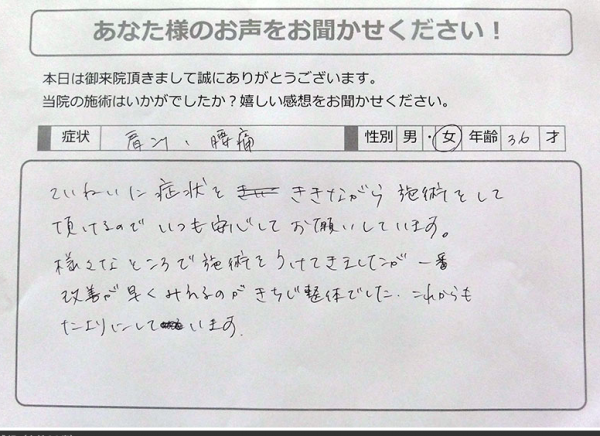 あなた様のお声をお聞かせください！
本日は御来院頂きまして誠にありがとうございます。
当院の施術はいかがでしたか？嬉しい感想をお聞かせください。
症状 肩コリ、腰痛 性別 男・女 年齢 36 才
ていねいに症状を ききながら 施術をして
頂けるので いつも安心して お願いしています。
様々なところで施術をうけてきましたが 一番
改善が早くみれるのが きちじ整体でした. これからも
たよりにして います.